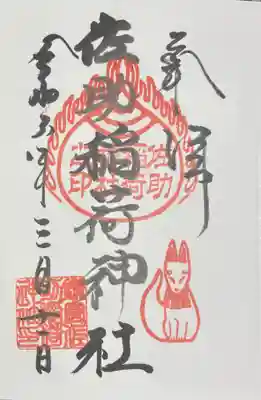 奉拝
佐助稲荷神社
令和六年三月十一日
佐助稲荷神社之印